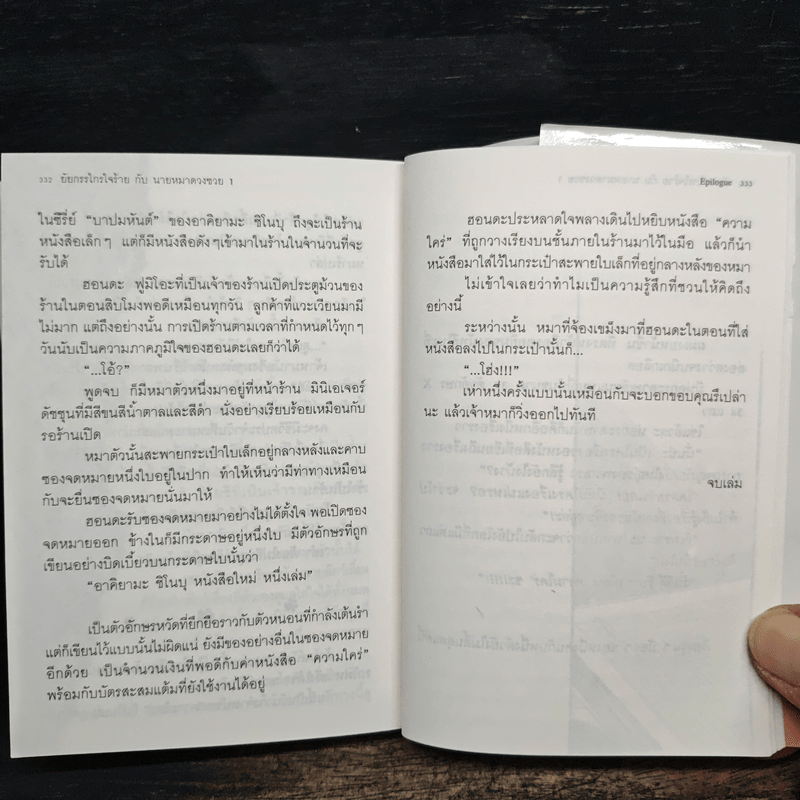 332 ยัยกรรไกรใจร้าย กับ นายหมาดวงซวย 1
ในซีรี่ย์ "บาปมหันต์" ของอาคิยามะ ชิโนบุ ถึงจะเป็นร้าน
หนังสือเล็กๆ แต่ก็มีหนังสือดังๆเข้ามาในร้านในจำนวนที่จะ
รับได้
ฮอนดะ ฟูมิโอะที่เป็นเจ้าของร้านเปิดประตูม้วนของ
ร้านในตอนสิบโมงพอดีเหมือนทุกวัน ลูกค้าที่แวะเวียนมามี
ไม่มาก แต่ถึงอย่างนั้น การเปิดร้านตามเวลาที่กำหนดไว้ทุกๆ
วันนับเป็นความภาคภูมิใจของฮอนดะเลยก็ว่าได้
"...โอ้?"
พูดจบ ก็มีหมาตัวหนึ่งมาอยู่ที่หน้าร้าน มินิเอเจอร์
ดัชชุนที่มีสีขนสีน้ำตาลและสีดำ นั่งอย่างเรียบร้อยเหมือนกับ
รอร้านเปิด
หมาตัวนั้นสะพายกระเป๋าใบเล็กอยู่กลางหลังและคาบ
ซองจดหมายหนึ่งใบอยู่ในปาก ทำให้เห็นว่ามีท่าทางเหมือน
กับจะยื่นซองจดหมายนั้นมาให้
ฮอนดะรับซองจดหมายมาอย่างไม่ได้ตั้งใจ พอเปิดซอง
จดหมายออก ข้างในก็มีกระดาษอยู่หนึ่งใบ มีตัวอักษรที่ถูก
เขียนอย่างบิดเบี้ยวบนกระดาษใบนั้นว่า
"อาคิยามะ ชิโนบุ หนังสือใหม่ หนึ่งเล่ม"
เป็นตัวอักษรหวัดที่ยึกยือราวกับตัวหนอนที่กำลังเต้นรำ
แต่ก็เขียนไว้แบบนั้นไม่ผิดแน่ ยังมีของอย่างอื่นในซองจดหมาย
อีกด้วย เป็นจำนวนเงินที่พอดีกับค่าหนังสือ "ความใคร่"
พร้อมกับบัตรสะสมแต้มที่ยังใช้งานได้อยู่
Epilogue 333
ฮอนดะประหลาดใจพลางเดินไปหยิบหนังสือ "ความ
ใคร่" ที่ถูกวางเรียงบนชั้นภายในร้านมาไว้ในมือ แล้วก็นำ
หนังสือมาใส่ไว้ในกระเป๋าสะพายใบเล็กที่อยู่กลางหลังของหมา
ไม่เข้าใจเลยว่าทำไมเป็นความรู้สึกที่ชวนให้คิดถึง
อย่างนี้
ระหว่างนั้น หมาที่จ้องเขม็งมาที่ฮอนดะในตอนที่ใส่
หนังสือลงไปในกระเป๋านั้นก็...
"...โฮ่ง!!!"
เห่าหนึ่งครั้งแบบนั้นเหมือนกับจะบอกขอบคุณรึเปล่า
นะ แล้วเจ้าหมาก็วิ่งออกไปทันที
จบเล่ม